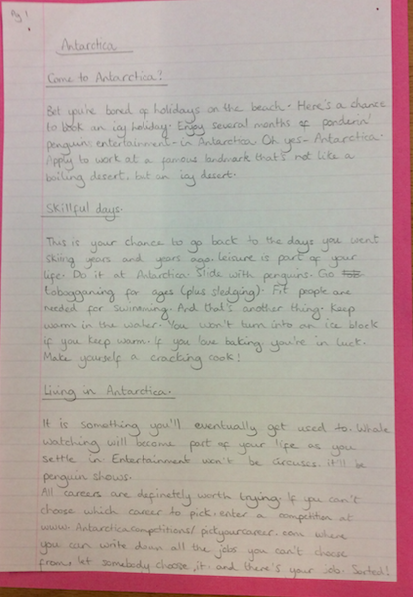 Pg 1
Antarctica
Come to Antarctica!
Bet you're bored of holidays on the beach. Here's a chance
to book an icy holiday. Enjoy several months of ponderin'
penguins entertainment - in Antarctica. Oh yes - Antarctica.
Apply to work at a famous landmark that's not like a
boiling desert, but an icy desert.
Skillful days.
This is your chance to go back to the days you went
skiing years and years ago. Leisure is part of your
life. Do it at Antarctica. Slide with penguins. Go
tobogganing for ages (plus sledging). Fit people are
needed for swimming. And that's another thing. Keep
warm in the water. You won't turn into an ice block
if you keep warm. If you love baking, you're in luck.
Make yourself a cracking cook!
Living in Antarctica.
It is something you'll eventually get used to. Whale
watching will become part of your life as you
settle in. Entertainment won't be circuses, it'll be
penguin shows.
All careers are definetely worth trying. If you can't
choose which career to pick, enter a competition at
www.Antarcticacompetitions/pickyourcareer.com where
you can write down all the jobs you can't choose
from, let somebody choose it, and there's your job. Sorted!